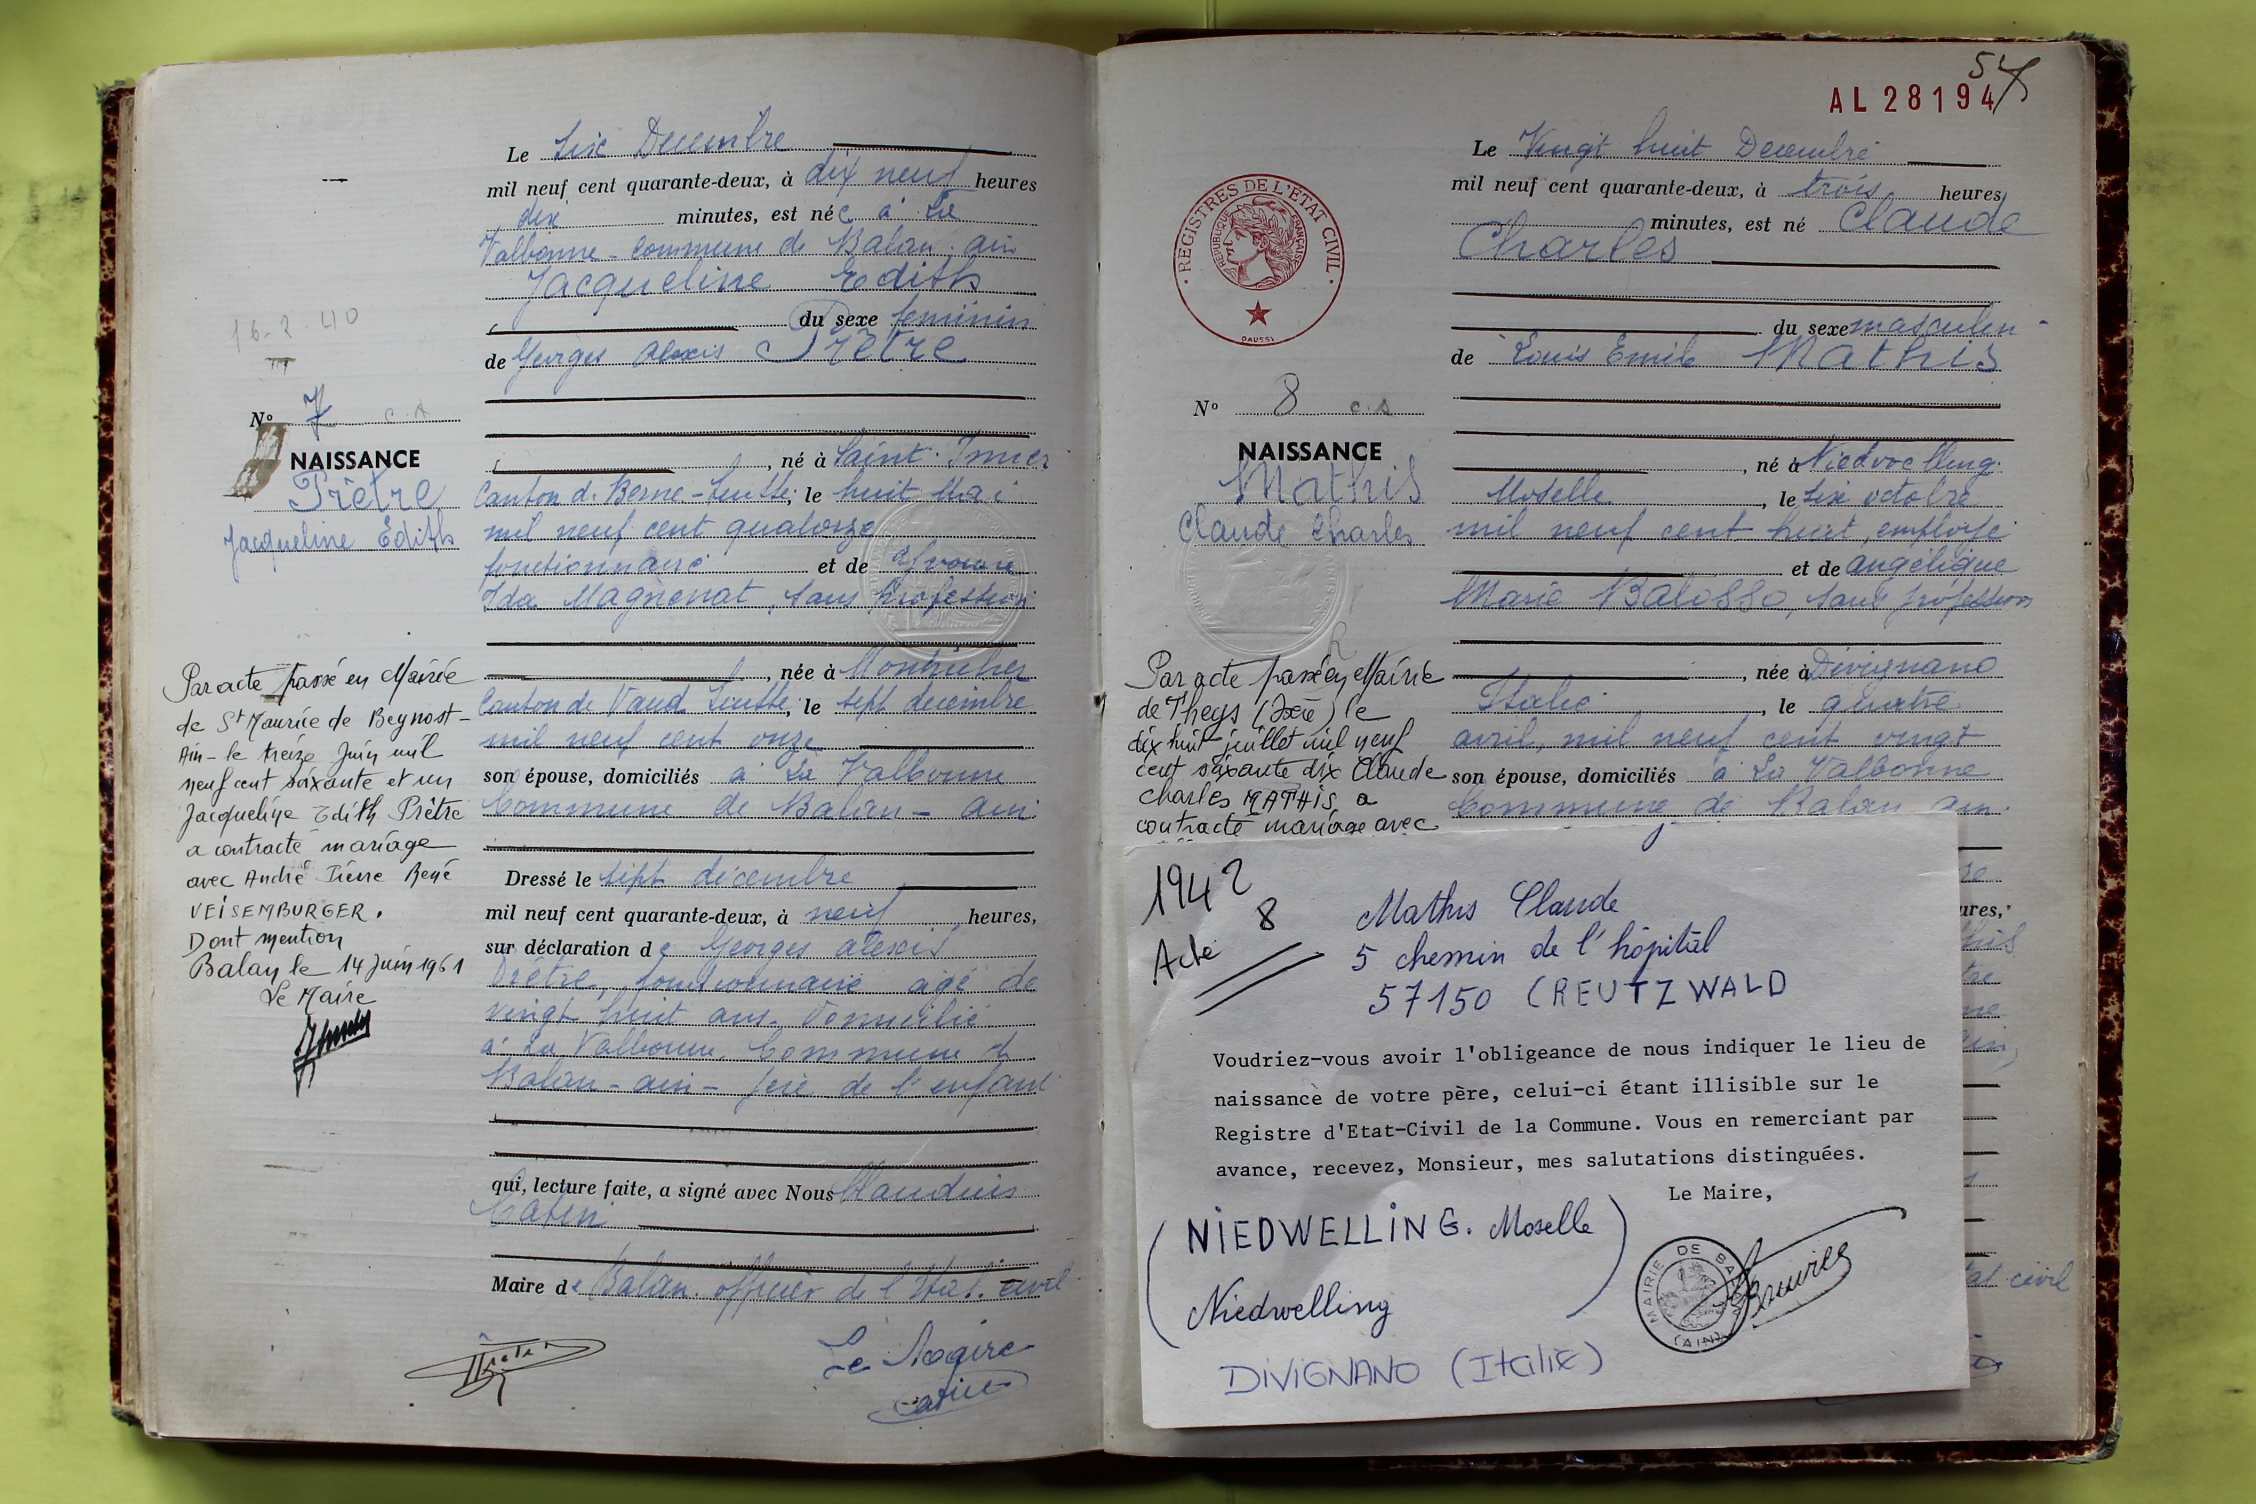 Le Six Decembre
mil neuf cent quarante-deux, à dix neuf heures
dix minutes, est née à La
Valbonne - Commune de Balan - ain
Jacqueline Edith
du sexe feminin
de Georges Alexis Prêtre
16-2-40
N° 7 C.A
NAISSANCE
Prêtre
Jacqueline Edith
, né à Saint-Imier
Canton de Berne - Suisse, le huit Mai
mil neuf cent quatorze
fonctionnaire et de Yvonne
Ida Magnenat, sans profession
, née à
Canton de Vaud Suisse, le sept decembre
mil neuf cent onze
son épouse, domiciliés à La Valbonne
Commune de Balan - ain
Dressé le sept décembre
mil neuf cent quarante-deux, à neuf heures,
sur déclaration de Georges alexis
Prêtre, fonctionnaire agé de
vingt huit ans - Domicilié
à La Valbonne. Commune de
Balan - ain - père de l'enfant
qui, lecture faite, a signé avec Nous
Catin
Maire de Balan. officier de l'Etat. civil
Le Maire
Catin
Par acte passé en Mairie
de St Maurice de Beynost -
Ain - le treize Juin mil
neuf cent soixante et un
Jacqueline Edith Prêtre
a contracté mariage
avec André Pierre René
VEISEMBURGER.
Dont mention
Balan le 14 Juin 1961
Le Maire
54
AL 28194
REGISTRES DE L'ETAT CIVIL
REPUBLIQUE FRANÇAISE
DAUSSI
Le Vingt huit Decembre
mil neuf cent quarante-deux, à trois heures
minutes, est né Claude
Charles
du sexe masculin
de Louis Emile Mathis
N° 8 C.A
NAISSANCE
Mathis
Claude Charles
, né à Niedvelling
Moselle, le six octobre
mil neuf cent huit, employé
et de angélique
Marie Balosso, sans profession
, née à Divignano
Italie, le quatre
avril, mil neuf cent vingt
son épouse, domiciliés à La Valbonne
Commune de Balan ain.
Par acte passé en Mairie
de Theys (Isère) le
dix huit juillet mil neuf
cent soixante dix Claude
Charles MATHIS a
contracté mariage avec
ures,
tat civil
1942
Acte 8
Mathis Claude
5 chemin de l'hôpital
57150 CREUTZWALD
Voudriez-vous avoir l'obligeance de nous indiquer le lieu de
naissance de votre père, celui-ci étant illisible sur le
Registre d'Etat-Civil de la Commune. Vous en remerciant par
avance, recevez, Monsieur, mes salutations distinguées.
Le Maire,
(NIEDWELLING. Moselle)
Niedwelling
DIVIGNANO (Italie)
MAIRIE DE BALAN
(AIN)